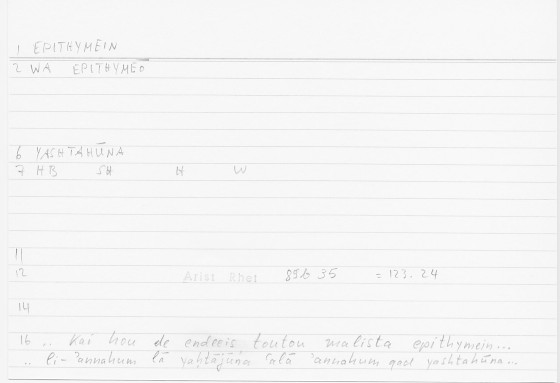 1 EPITHYMEIN
2 WA EPITHYMEŌ
6 YASHTAHŪNA
7 HB SH H W
11
12 Arist Rhet 89b 35 = 123. 24
14
16 .. kai hou de endeeis toutou malista epithymein...
.. li-'annahum lā yaḥtājūna 'alā 'annahum qad yashtahūna...